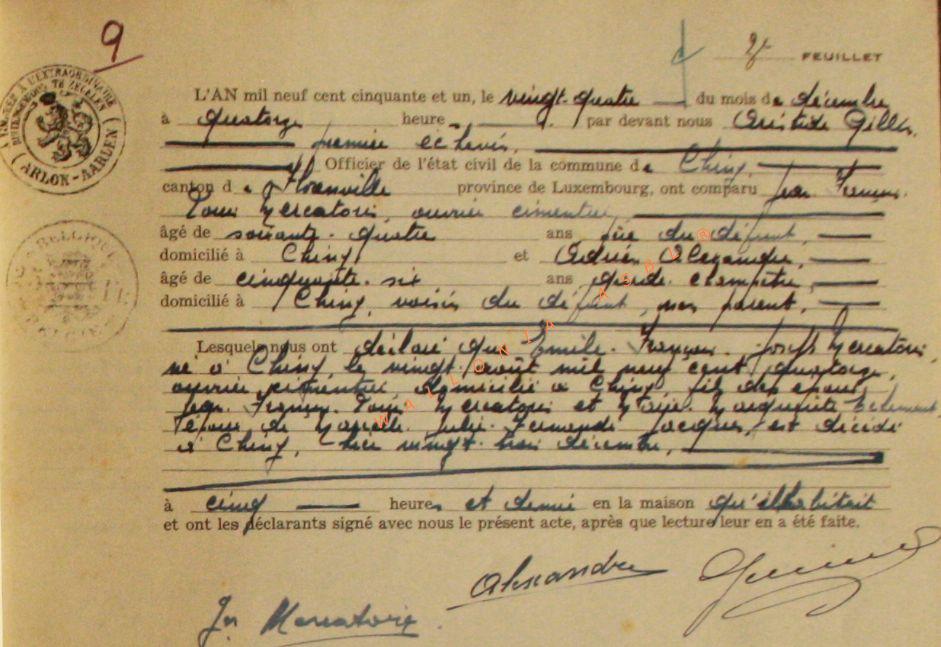 9
2e FEUILLET
TIMBRE A L'EXTRAORDINAIRE
BUITENGEWOON TE ZEGELEN
(ARLON-AARLEN)
BELGIQUE
BELGIE
L'AN mil neuf cent cinquante et un, le vingt-quatre du mois de décembre
à quatorze heure, par devant nous Aristide Gilles,
premier échevin,
Officier de l'état civil de la commune de Chiny,
canton de Florenville province de Luxembourg, ont comparu Jean François
Louis Mercatoris, ouvrier cimentier,
âgé de soixante-quatre ans père du défunt,
domicilié à Chiny et Adrien Alexandre,
âgé de cinquante-six ans garde champêtre,
domicilié à Chiny, voisin du défunt, non parent,
Lesquels nous ont déclaré que Emile François Joseph Mercatoris
né à Chiny, le vingt août mil neuf cent quatorze,
ouvrier cimentier, domicilié à Chiny, fils des époux
Jean François Louis Mercatoris et Marie Marguerite
époux de Julie Fernande Jacques, est décédé
à Chiny, hier vingt-trois décembre,
à cinq heures et demie en la maison qu'il habitait
et ont les déclarants signé avec nous le présent acte, après que lecture leur en a été faite.
WALLONIA ASBL @
Alexandre
Jn Mercatoris